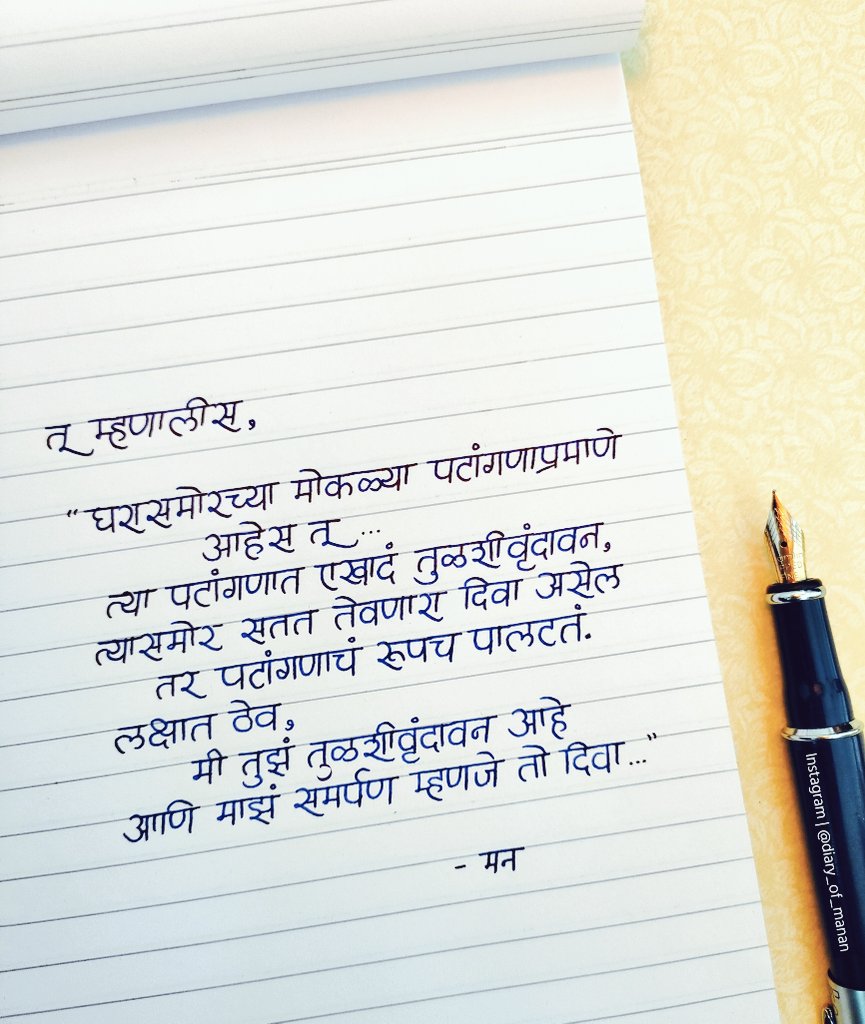 तू म्हणालीस,
"घरासमोरच्या मोकळ्या पटांगणाप्रमाणे
आहेस तू...
त्या पटांगणात एखादं तुळशीवृंदावन,
त्यासमोर सतत तेवणारा दिवा असेल
तर पटांगणाचं रूपच पालटतं.
लक्षात ठेव,
मी तुझं तुळशीवृंदावन आहे
आणि माझं समर्पण म्हणजे तो दिवा..."
- मन
Instagram | @diary_of_manan